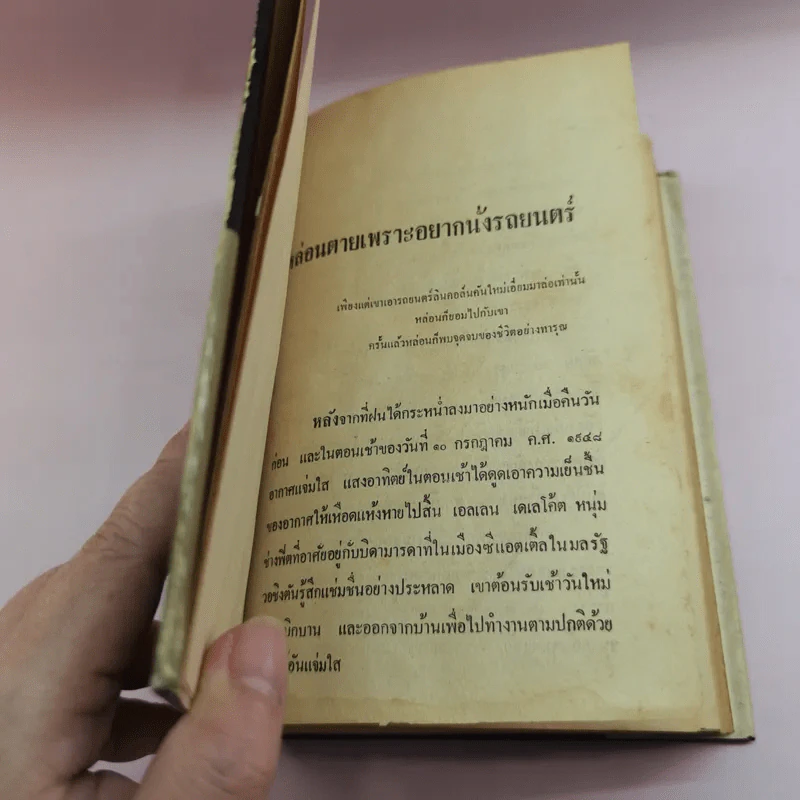 หล่อนตายเพราะอยากนั่งรถยนตร์
เพียงแต่เขาเอารถยนตร์ลินคอล์นคันใหม่เอี่ยมมาล่อเท่านั้น
หล่อนก็ยอมไปกับเขา
ครั้นแล้วหล่อนก็พบจุดจบของชีวิตอย่างทารุณ
หลังจากที่ฝนได้กระหน่ำลงมาอย่างหนักเมื่อคืนวัน
ก่อน และในตอนเช้าของวันที่ ๑๐ กรกฎาคม ค.ศ. ๑๙๔๘
อากาศแจ่มใส แสงอาทิตย์ในตอนเช้าได้ดูดเอาความเย็นชื้น
ของอากาศให้เหือดแห้งหายไปสิ้น เอลเลน เดเลโค้ต หนุ่ม
ช่างฟิตที่อาศัยอยู่กับบิดามารดาที่ในเมืองซีแอตเติ้ลในมลรัฐ
วอชิงตันรู้สึกแช่มชื่นอย่างประหลาด เขาต้อนรับเช้าวันใหม่
เบิกบาน และออกจากบ้านเพื่อไปทำงานตามปกติด้วย
อันแจ่มใส